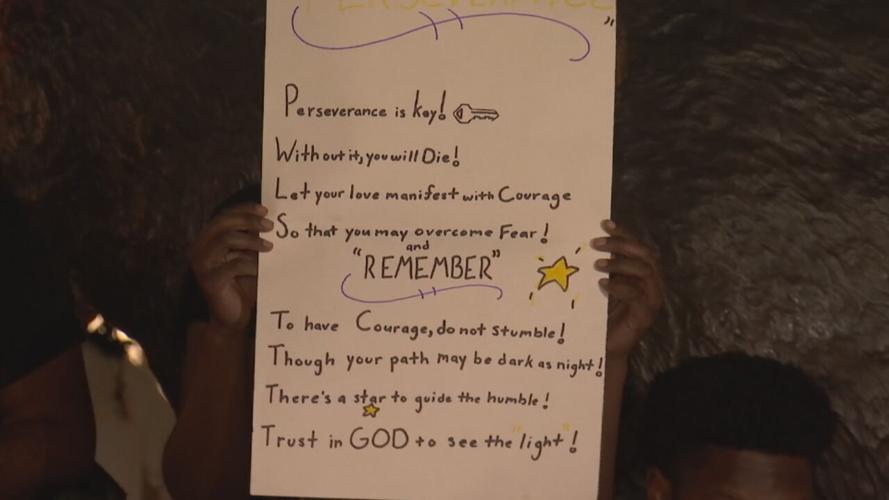 PERSEVERANCE"
Perseverance is key!
Without it, you will Die!
Let your love manifest with Courage
So that you may overcome Fear!
and
"REMEMBER"
To have Courage, do not stumble!
Though your path may be dark as night!
There's a star to guide the humble!
Trust in GOD to see the "light"!